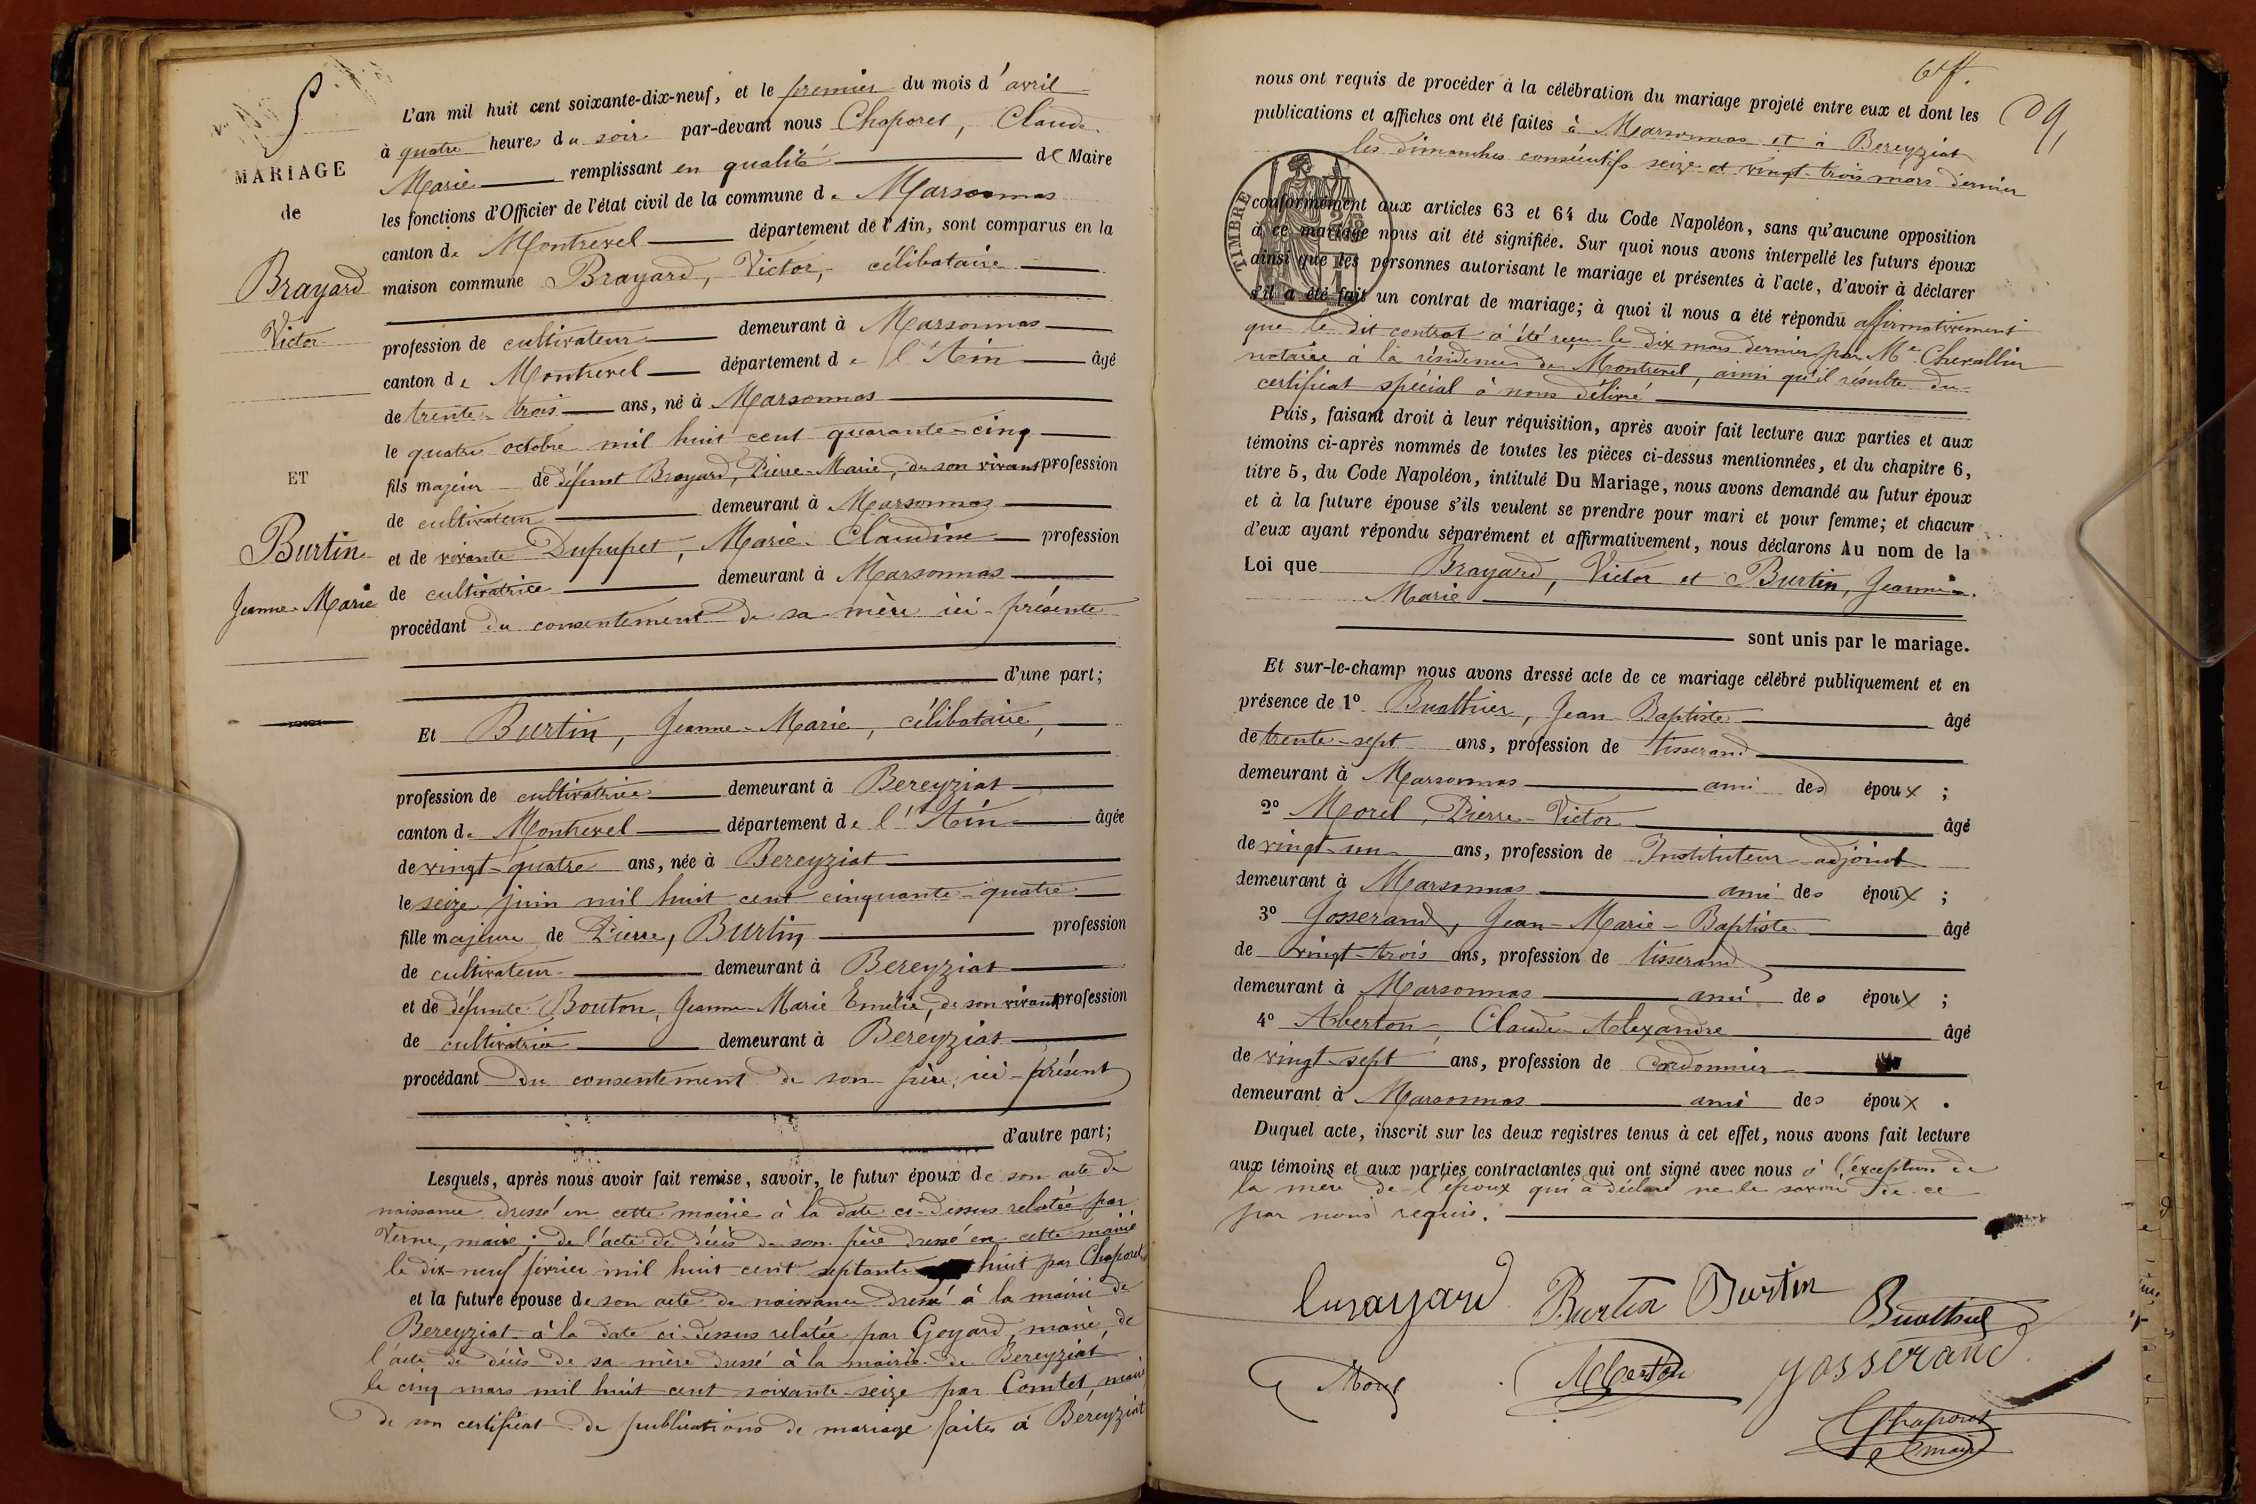 5
MARIAGE
de
Brayard
Victor
ET
Burtin
Jeanne-Marie
L'an mil huit cent soixante-dix-neuf, et le premier du mois d'avril
à quatre heures du soir par-devant nous Chaporel, Claude
Marie remplissant en qualité de Maire
les fonctions d'Officier de l'état civil de la commune de Marsonnas
canton de Montrevel département de l'Ain, sont comparus en la
maison commune Brayard, Victor, célibataire
profession de cultivateur demeurant à Marsonnas
canton de Montrevel département de l'Ain âgé
de trente-trois ans, né à Marsonnas
le quatre octobre mil huit cent quarante-cinq
fils majeur de défunt Brayard, Pierre-Marie, de son vivant profession
de cultivateur demeurant à Marsonnas
et de vivante Dupupet, Marie-Claudine profession
de cultivatrice demeurant à Marsonnas
procédant du consentement de sa mère ici-présente
d'une part;
Et Burtin, Jeanne-Marie, célibataire,
profession de cultivatrice demeurant à Bereyziat
canton de Montrevel département de l'Ain âgée
de vingt-quatre ans, née à Bereyziat
le seize juin mil huit cent cinquante-quatre
fille majeure de Pierre, Burtin profession
de cultivateur demeurant à Bereyziat
et de défunte Bouton, Jeanne-Marie Emélie, de son vivant profession
de cultivatrice demeurant à Bereyziat
procédant du consentement de son père, ici-présent
d'autre part;
Lesquels, après nous avoir fait remise, savoir, le futur époux de son acte de
naissance dressé en cette mairie à la date ci-dessus relatée par
Verne, maire; de l'acte de décès de son père dressé en cette mairie
le dix-neuf février mil huit cent septante huit par Chaporel
et la future épouse de son acte de naissance dressé à la mairie de
Bereyziat à la date ci-dessus relatée par Goyard, maire, de
l'acte de décès de sa mère dressé à la mairie de Bereyziat
le cinq mars mil huit cent soixante-seize par Comtet, maire
de son certificat de publications de mariage faites à Bereyziat
nous ont requis de procéder à la célébration du mariage projeté entre eux et dont les
publications et affiches ont été faites à Marsonnas et à Bereyziat
les dimanches consécutifs seize et vingt-trois mars dernier
TIMBRE
conformément aux articles 63 et 64 du Code Napoléon, sans qu'aucune opposition
à ce mariage nous ait été signifiée. Sur quoi nous avons interpellé les futurs époux
ainsi que les personnes autorisant le mariage et présentes à l'acte, d'avoir à déclarer
s'il a été fait un contrat de mariage; à quoi il nous a été répondu affirmativement
que le dit contrat à été reçu le dix mars dernier par Me Chevallier
notaire à la résidence de Montrevel, ainsi qu'il résulte du
certificat spécial à nous délivré
Puis, faisant droit à leur réquisition, après avoir fait lecture aux parties et aux
témoins ci-après nommés de toutes les pièces ci-dessus mentionnées, et du chapitre 6,
titre 5, du Code Napoléon, intitulé Du Mariage, nous avons demandé au futur époux
et à la future épouse s'ils veulent se prendre pour mari et pour femme; et chacun
d'eux ayant répondu séparément et affirmativement, nous déclarons Au nom de la
Loi que Brayard, Victor et Burtin, Jeanne-
Marie
sont unis par le mariage.
Et sur-le-champ nous avons dressé acte de ce mariage célébré publiquement et en
présence de 1° Buathier, Jean-Baptiste âgé
de trente-sept ans, profession de tisserand
demeurant à Marsonnas ami des époux ;
2° Morel, Pierre-Victor âgé
de vingt-un ans, profession de Instituteur-adjoint
demeurant à Marsonnas ami des époux ;
3° Josserand, Jean-Marie-Baptiste âgé
de vingt-trois ans, profession de tisserand
demeurant à Marsonnas ami des époux ;
4° Alberton, Claude-Alexandre âgé
de vingt-sept ans, profession de cordonnier
demeurant à Marsonnas ami des époux .
Duquel acte, inscrit sur les deux registres tenus à cet effet, nous avons fait lecture
aux témoins et aux parties contractantes qui ont signé avec nous à l'exception de
la mère de l'époux qui a déclaré ne le savoir de ce
par nous requis.
Burtin Burtin Buathier
Morel Alberton Josserand
Chaporel
maire